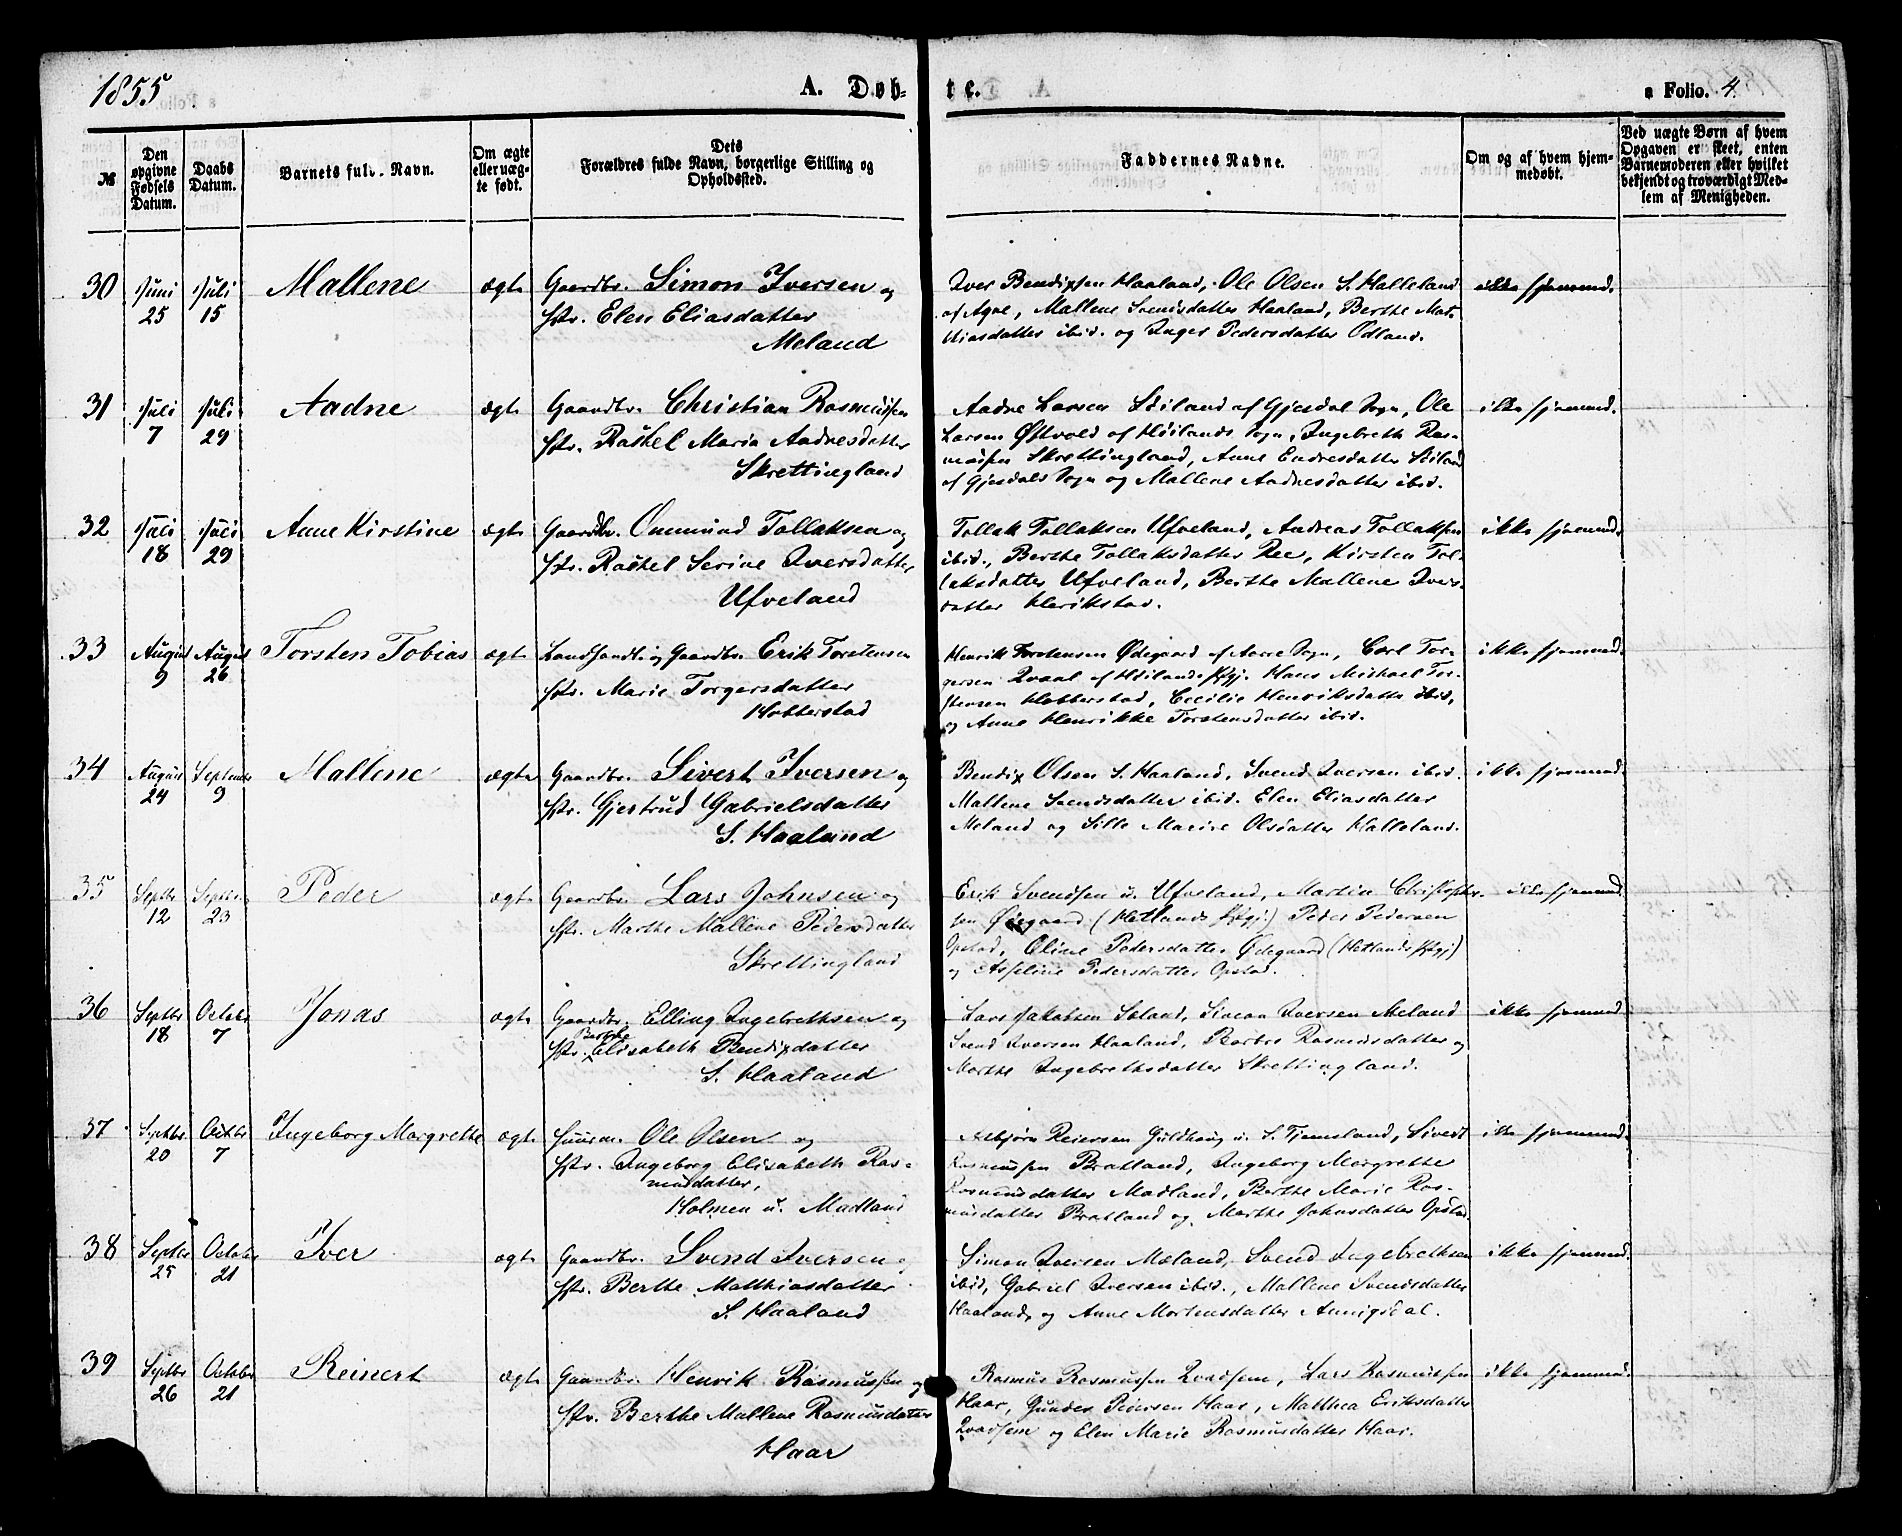 1855
A. Døb-
te.
a Folio. 4.
№
Den opgivne Fødsels Datum.
Daabs Datum.
Barnets fulde Navn.
Om ægte eller uægte født.
Dets Forældres fulde Navn, borgerlige Stilling og Opholdssted.
Faddernes Navne.
Om og af hvem hjemmedøbt.
Ved uægte Børn af hvem Opgaven er skeet, enten Barnemoderen eller hvilket bekjendt og troværdigt Medlem af Menigheden.
30 Juni 25 Juli 15 Mallene ægte Gaardbr. Simon Iversen og
Hstr. Elen Eliasdatter
Meland
Iver Bendixsen Haaland, Ole Olsen S. Halleland
af Agne, Mallene Svendsdatter Haaland, Berthe Mat-
thiasdatter ibid. og Inger Pedersdatter Odland.
ikke hjemmed.
31 Juli 7 Juli 29 Aadne ægte Gaardbr. Christian Rasmussen
Hstr. Rachel Maria Aadnesdatter
Skrettingland
Aadne Larsen Stiland af Gjesdal Sogn, Ole
Larsen Østvold af Høilands Sogn, Ingebreth Ras-
mussen Skrettingland, Anne Endresdatter Stiland
af Gjesdals Sogn og Mallene Aadnesdatter ibid.
ikke hjemmed.
32 Juli 18 Juli 29 Anne Kirstine ægte Gaardbr. Onmund Tollaksen og
Hstr. Rachel Serine Iversdatter
Ufveland
Tollak Tollaksen Ufveland, Andreas Tollaksen
ibid., Berthe Tollaksdatter Ree, Kirsten Tol-
laksdatter Ufveland, Berthe Mallene Ivers-
datter Herikstad.
ikke hjemmed.
33 August 9 August 26 Torsten Tobias ægte Landhandl. og Gaardbr. Erik Torstensen
Hstr. Marie Torgersdatter
Hobberstad
Henrik Torstensen Ødegaard af Aarre Sogn, Carl Tor-
gersen Qvaal af Høilands Præstgj. Hans Michael Tor-
stensen Hobberstad, Cecilie Henriksdatter ibid,
og Anne Henrikke Torstensdatter ibid.
ikke hjemmed.
34 August 24 September 9 Mallene ægte Gaardbr. Sivert Iversen og
Hstr. Gjertrud Gabrielsdatter
S. Haaland
Bendix Olsen S. Haaland, Svend Iversen ibid.
Mallene Svendsdatter ibid. Elen Eliasdatter
Meland og Sille Marine Olsdatter Halleland.
ikke hjemmed.
35 Septbr 12 Septbr 23 Peder ægte Gaardbr. Lars Johnsen og
Hstr. Marthe Mallene Pedersdatter
Skrettingland
Erik Svendsen u. Ufveland, Martin Christophersen
Ødegaard (Hetlands Præstgj) Peder Pedersen
Opstad, Oline Pedersdatter Ødegaard (Hetlands Præstgj)
og Asseline Pedersdatter Opstad.
ikke hjemmed
36 Septbr 18 October 7 Jonas ægte Gaardbr. Elling Ingebrethsen og
Hstr. Berthe Elisabeth Bendixdatter
S. Haaland
Lars Jakobsen Soland, Simon Iversen Meland
Svend Iversen Haaland, Barbro Rasmusdatter og
Marthe Ingebrethsdatter Skrettingland.
ikke hjemmed
37 Septbr 20 Octbr 7 Ingeborg Margrethe ægte Huusm. Ole Olsen og
Hstr. Ingeborg Elisabeth Ras-
musdatter,
Holmen u. Madland
Asbjørn Reiersen Guldhaug u. S. Tjemsland, Sivert
Rasmussen Bratland, Ingeborg Margrethe
Rasmusdatter Madland, Berthe Marie Ras-
musdatter Bratland og Marthe Johnsdatter Opstad
ikke hjemmed.
38 Septbr 25 October 21 Iver ægte Gaardbr. Svend Iversen og
Hstr. Berthe Matthiasdatter
S. Haaland
Simon Iversen Meland, Svend Ingebrethsen
ibid, Gabriel Iversen ibid., Mallene Svendsdatter
Haaland, og Anne Mortensdatter Aunigsdal.
ikke hjemmed.
39 Septbr 26 October 21 Reinert ægte Gaardbr. Henrik Rasmussen og
Hstr. Berthe Mallene Rasmusdatter
Haar
Rasmus Rasmussen Qvadsem, Lars Rasmussen
Haar, Gunder Pedersen Haar, Matthea Eriksdatter
Qvadsem og Elen Marie Rasmusdatter Haar.
ikke hjemmed.